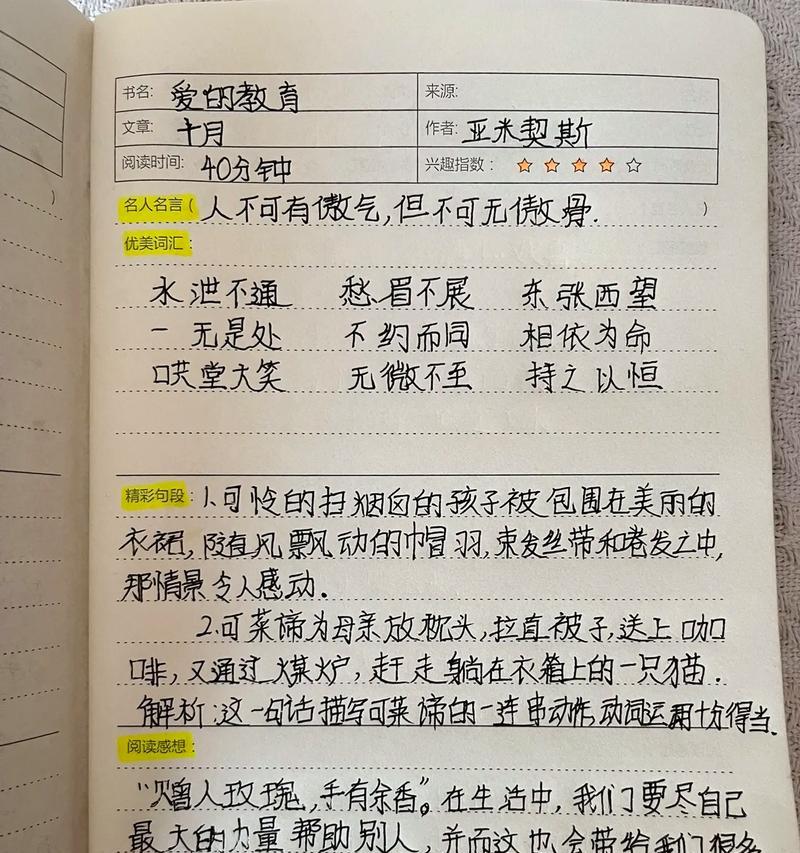 书名: 爱的教育 来源:
文章: 十月 作者: 亚米契斯
阅读时间: 40分钟 兴趣指数:
名人名言( 人不可有傲气,但不可无傲骨. )
优美词汇:
水泄不通 愁眉不展 东张西望
一无是处 不约而同 相依为命
哄堂大笑 无微不至 持之以恒
精彩句段: 1.可怜的扫烟囱的孩子被包围在美丽的
衣裙,随风飘动的帽羽,束发丝带和卷发之中,
那情景令人感动.
2.可莱谛为母亲放枕头,拉直被子,送上咖
啡,又通过煤炉,赶走躺在衣箱上的一只猫.
解析:这一句话描写可莱谛的一连串动作,动词运用十分得当.
阅读感想:
“赠人玫瑰,手有余香”。在生活中,我们要尽自己
最大的力量帮助别人,并而这也会带给我们很多